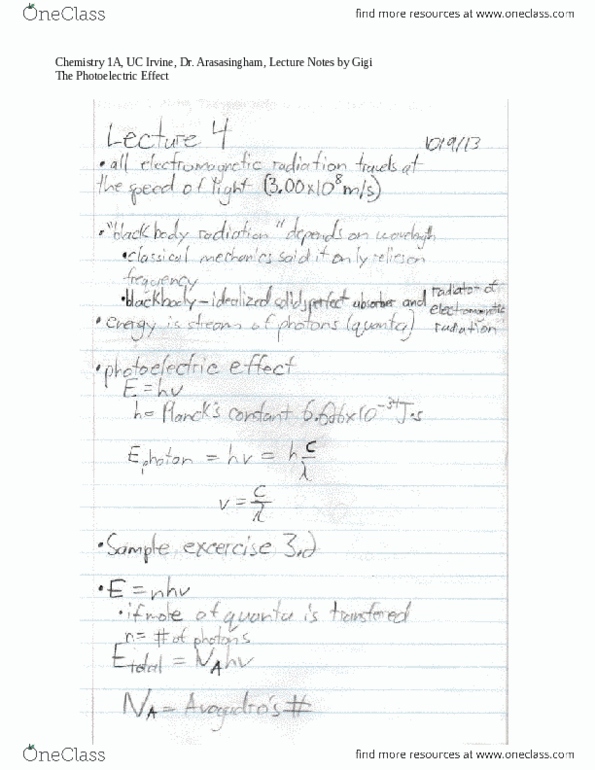 OneClass
find more resources at www.oneclass.com
Chemistry 1A, UC Irvine, Dr. Arasasingham, Lecture Notes by Gigi
The Photoelectric Effect
Lecture 4 10/9/13
• all electromagnetic radiation travels at
the speed of light (3.00x10⁸m/s)
• "blackbody radiation" depends on wavelength
• classical mechanics said it only relies on
frequency
• blackbody - idealized solids, perfect absorber and radiator of
electromagnetic
radiation
• energy is stream of photons (quanta)
• photoelectric effect
E = hν
h = Planck's constant 6.626x10⁻³⁴J·s
E photon = hν = h c/λ
ν = c/λ
• Sample excercise 3.2
• E = nhν
• if mole of quanta is transfered
n = # of photons
E total = N_A hν
N_A = Avogadro's #
OneClass
find more resources at www.oneclass.com